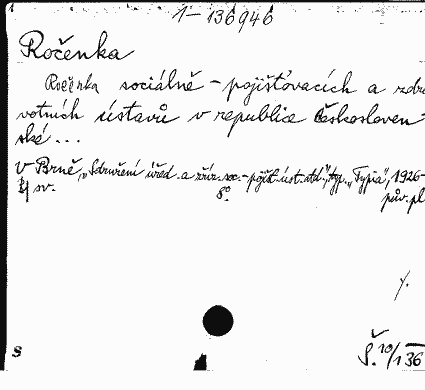 1-136946
Ročenka
Ročenka sociálně-pojišťovacích a zdra
votních ústavů v republice Českosloven
ské...
V Brně, „Sdružení úřed. a zříz. soc.-pojišť. úst. atd.", typ. „Typia", 1926-
sv. 8°. pův. pl
Š. 10/136
s